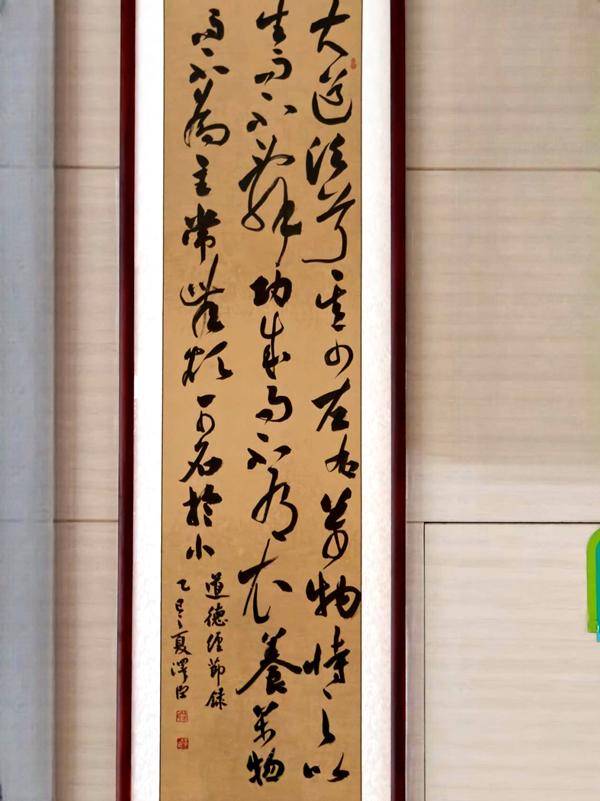 大道泛兮其可左右萬物恃之以
生而不辭功成而不有衣養萬物
而不為主常無欲可名於小
道德經節錄
乙巳夏澤臣